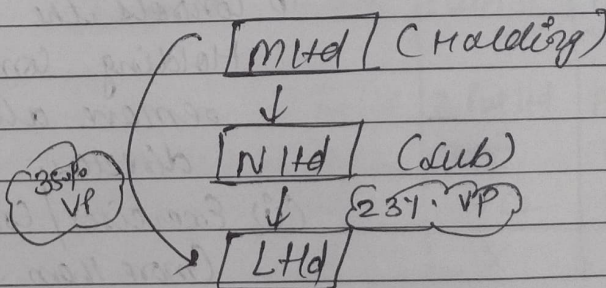 M Ltd (Holding)
N Ltd (Sub)
35% VP
23% VP
L Ltd